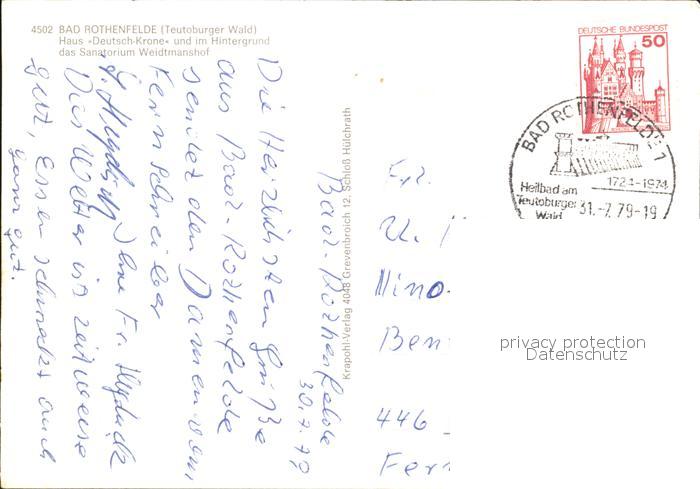 4502 BAD ROTHENFELDE (Teutoburger Wald)
Haus »Deutsch-Krone« und im Hintergrund
das Sanatorium Weidtmanshof
DEUTSCHE BUNDESPOST
50
BAD ROTHENFELDE 1
1724-1974
Heilbad am
Teutoburger
Wald
31.-7.79-19
Krapohl-Verlag 4048 Grevenbroich 12, Schloß Hülchrath
Bad-Rothenfelde
30.7.79
Die Herzlichsten Grüße
aus Bad-Rothenfelde
sendet den Damen vom
Fernschreiber
Ihre Fr.
Das Wetter ist zeitweise
gut, Essen schmeckt auch
ganz gut.
Frl.
U.
Mino
Ben
446
Fer
privacy protection
Datenschutz